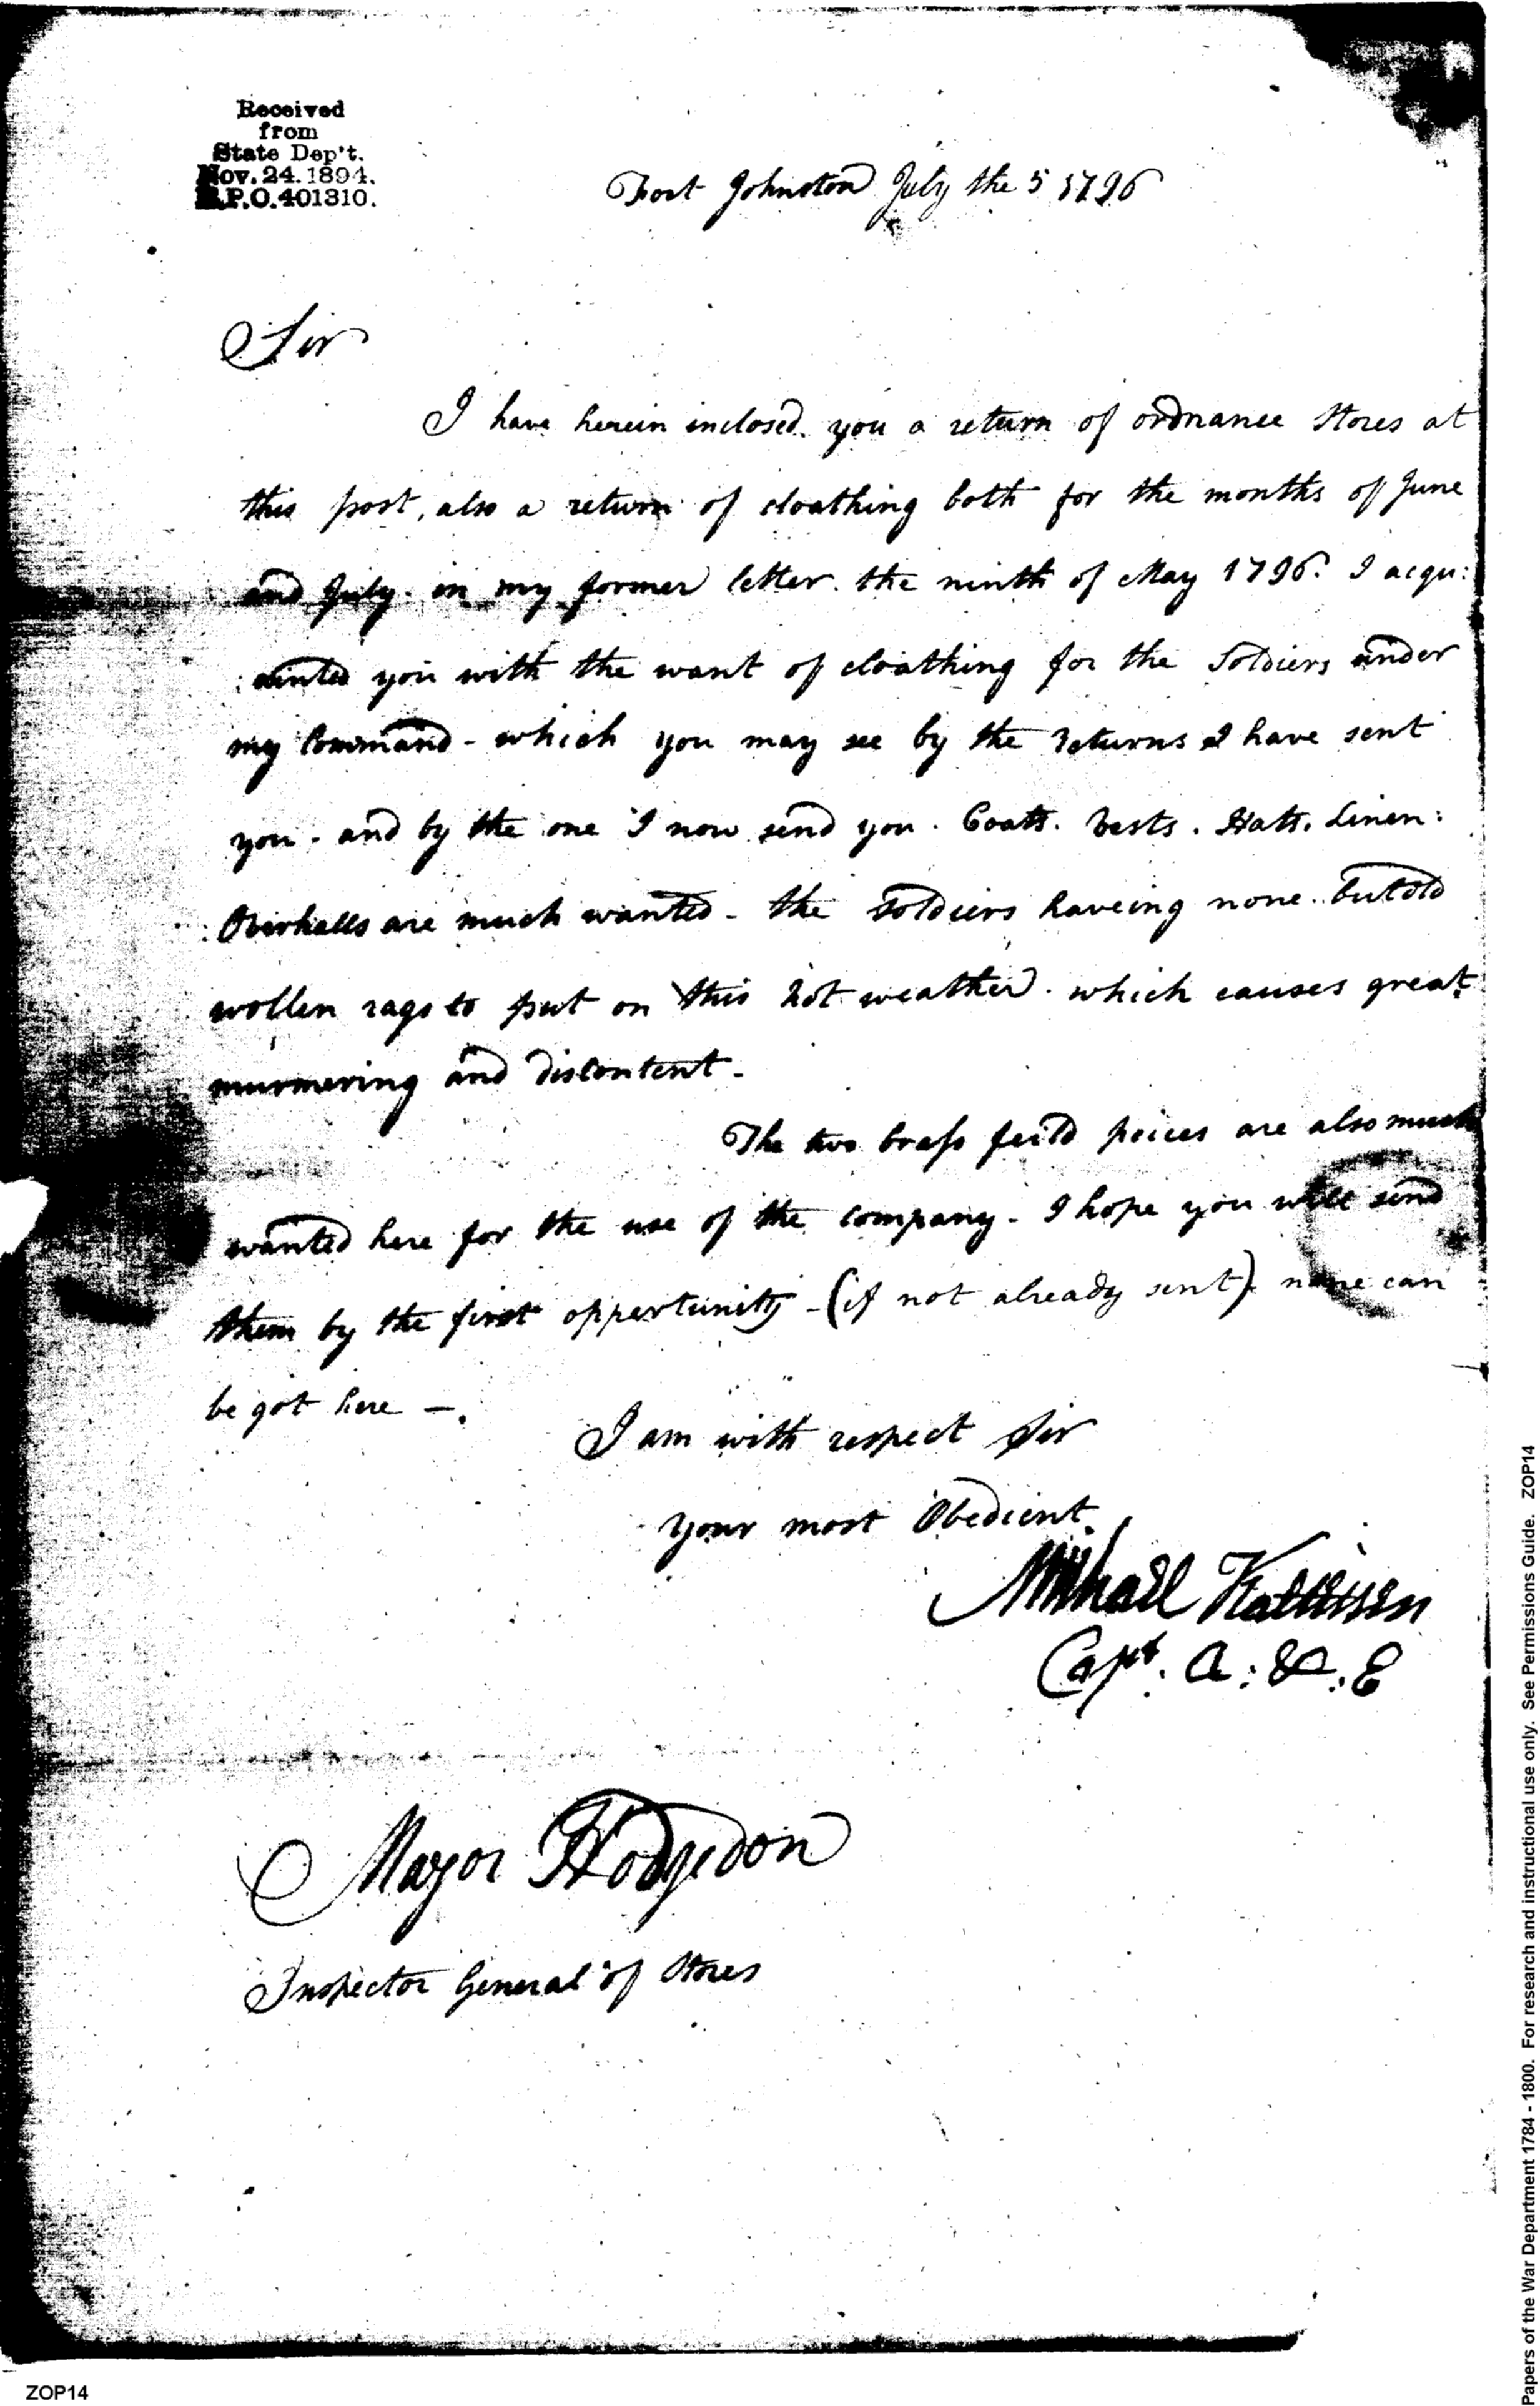 Received
from
State Dep't.
Nov. 24. 1894.
R.P.O. 401310.
Fort Johnston July the 5 1796
Sir
I have herein inclosed you a return of ordnance Stores at
this post, also a return of cloathing both for the months of June
and July. in my former letter. the ninth of May 1796. I acqu:
:ainted you with the want of cloathing for the Soldiers under
my Command - which you may see by the returns I have sent
you - and by the one I now send you. Coats. Vests. Hatts. Linen:
:Overhalls are much wanted - the Soldiers haveing none. but old
wollen rags to put on this hot weather. which causes great
murmering and discontent -
The two brass feild peices are also much
wanted here for the use of the company - I hope you will send
them by the first oppertunity - (if not already sent) none can
be got here -.
I am with respect Sir
your most Obedient
Michael Kalteisen
Capt. A: & : E
Mayor Hodgedon
Inspector General of Stores
ZOP14
Papers of the War Department 1784 - 1800. For research and instructional use only. See Permissions Guide. ZOP14